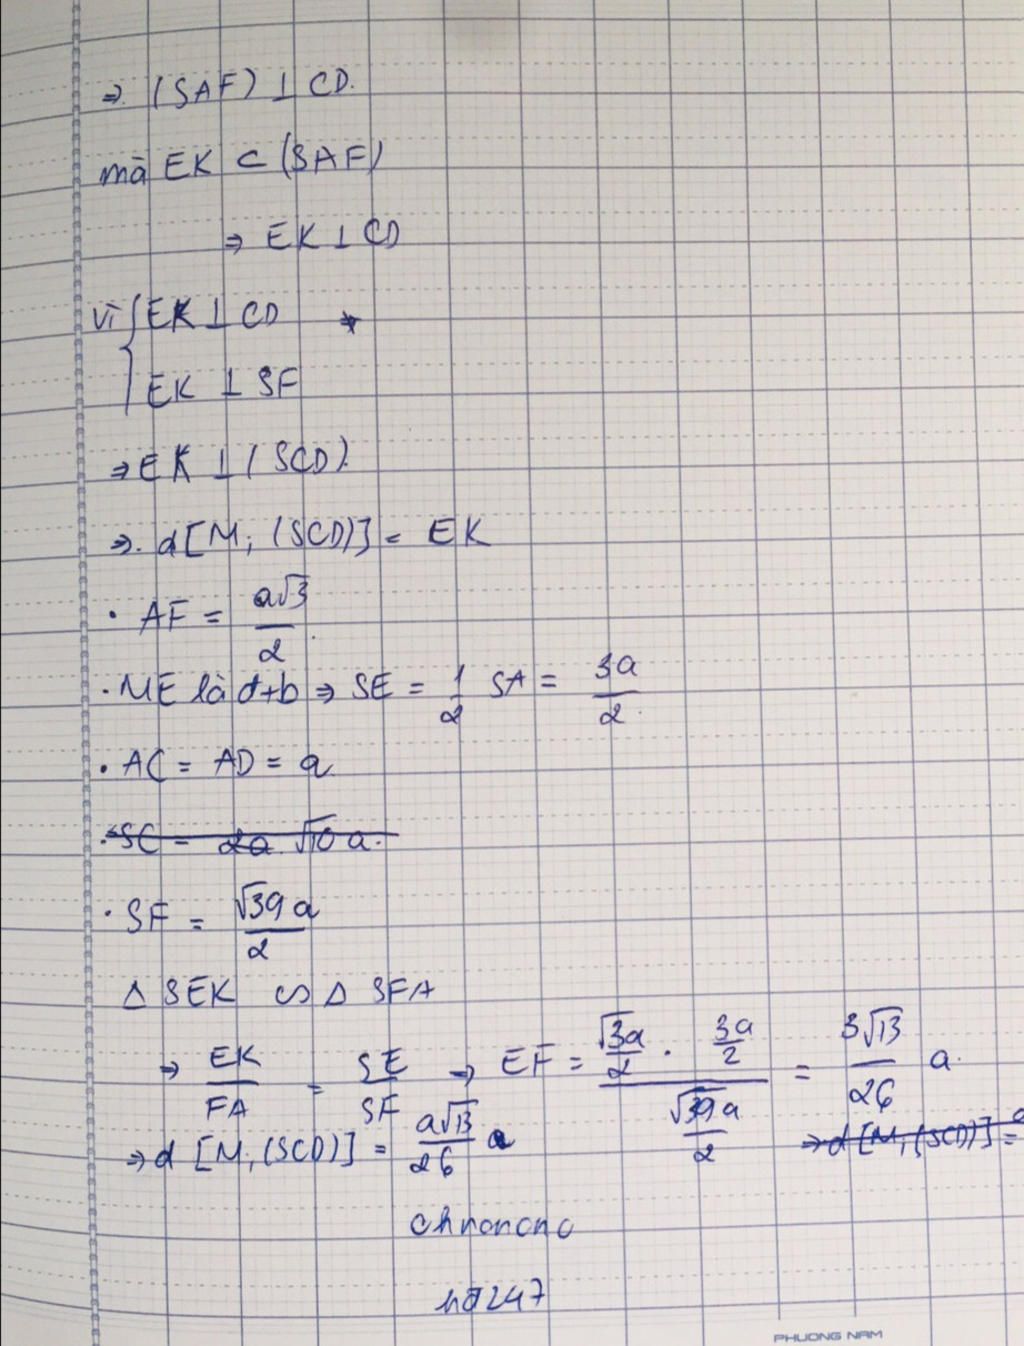 ⇒ (SAF) ⊥ CD.
mà EK ⊂ (SAF)
⇒ EK ⊥ CD
Vì { EK ⊥ CD *
EK ⊥ SF
⇒ EK ⊥ (SCD).
⇒. d[M; (SCD)] = EK
· AF = a√3/2.
· ME là đtb ⇒ SE = 1/2 SA = 3a/2.
· AC = AD = a
· SC = 2a √10 a.
· SF = √39 a/2
Δ SEK ∽ Δ SFA
⇒ EK/FA = SE/SF ⇒ EF = (√3a/2 · 3a/2)/(√39 a/2) = 3√13/26 a.
⇒ d [M, (SCD)] = a√13/26 a ⇒ d [M, (SCD)] = a
hd247
PHUONG NAM